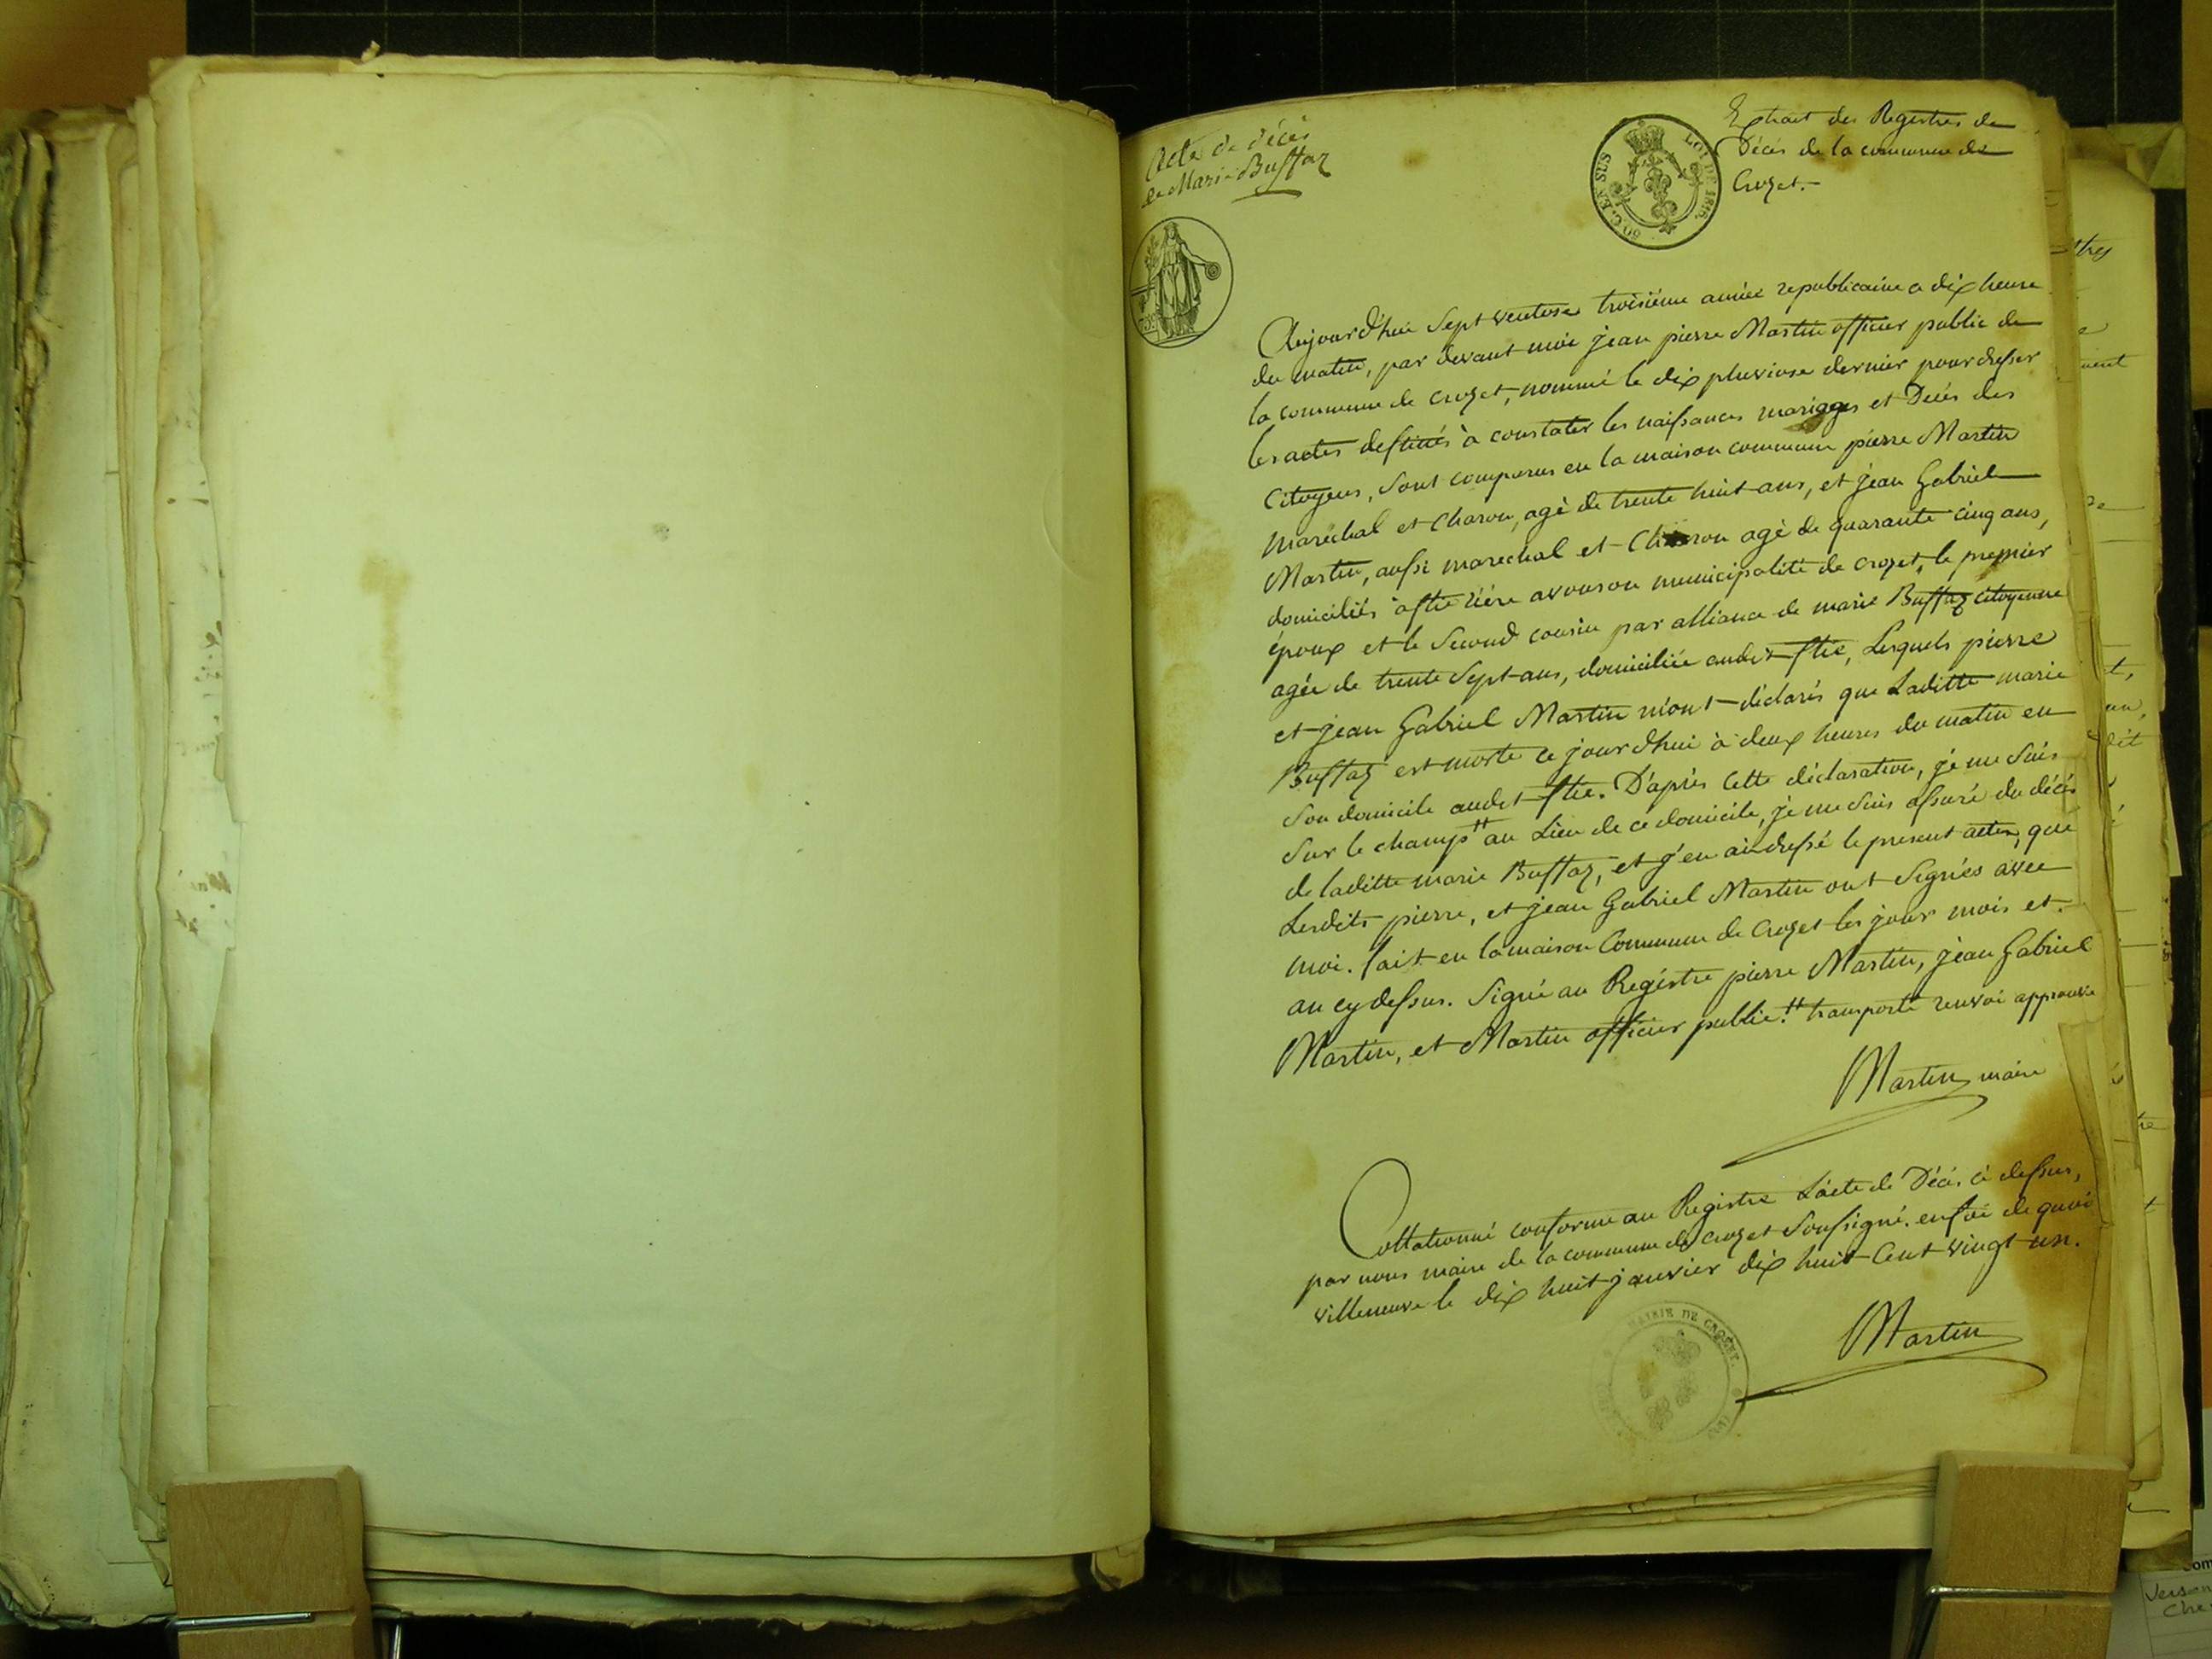 Acte de décès
de Marie Buffaz
Extrait des Registres de
Décès de la commune de
Crozet.
50 C. EN SUS
LOI DE 1816.
Aujourd'hui Sept ventose troisième année republicaine a dix heure
du matin, par devant moi jean pierre Martin officier public de
la commune de crozet, nommé le dix pluviose dernier pour dresser
les actes destinés à constater les naissances mariages et Décès des
Citoyens, sont comparus en la maison commune pierre Martin
maréchal et charon, agé de trente huit ans, et jean Gabriel
Martin, aussi marechal et charron agé de quarante cinq ans,
domiciliés à flie rière avouson municipalité de crozet, le premier
époux et le Second cousin par alliance de marie Buffaz citoyenne
agée de trente Sept ans, domiciliée audit flie, Lesquels pierre
et jean Gabriel Martin m'ont déclarés que Laditte marie
Buffaz est morte ce jourd'hui à deux heures du matin en
Son domicile audit flie. D'après cette déclaration, je me Suis
Sur le champ # au Lieu de ce domicile, je me Suis assuré du décès
de laditte marie Buffaz, et j'en ai dressé le present acte, que
Lesdits pierre, et jean Gabriel Martin ont Signés avec
moi. fait en la maison Commune de Crozet les jour mois et
an cy dessus. Signé au Régistre pierre Martin, jean Gabriel
Martin, et Martin officier public. # transporté renvoi approuvé
Martin maire
Collationné conforme au Registre L'acte de Décès ci dessus,
par nous maire de la commune de crozet Soussigné. en foi de quoi
villeneuve le dix huit janvier dix huit Cent vingt un.
MAIRIE DE CROZET
Martin